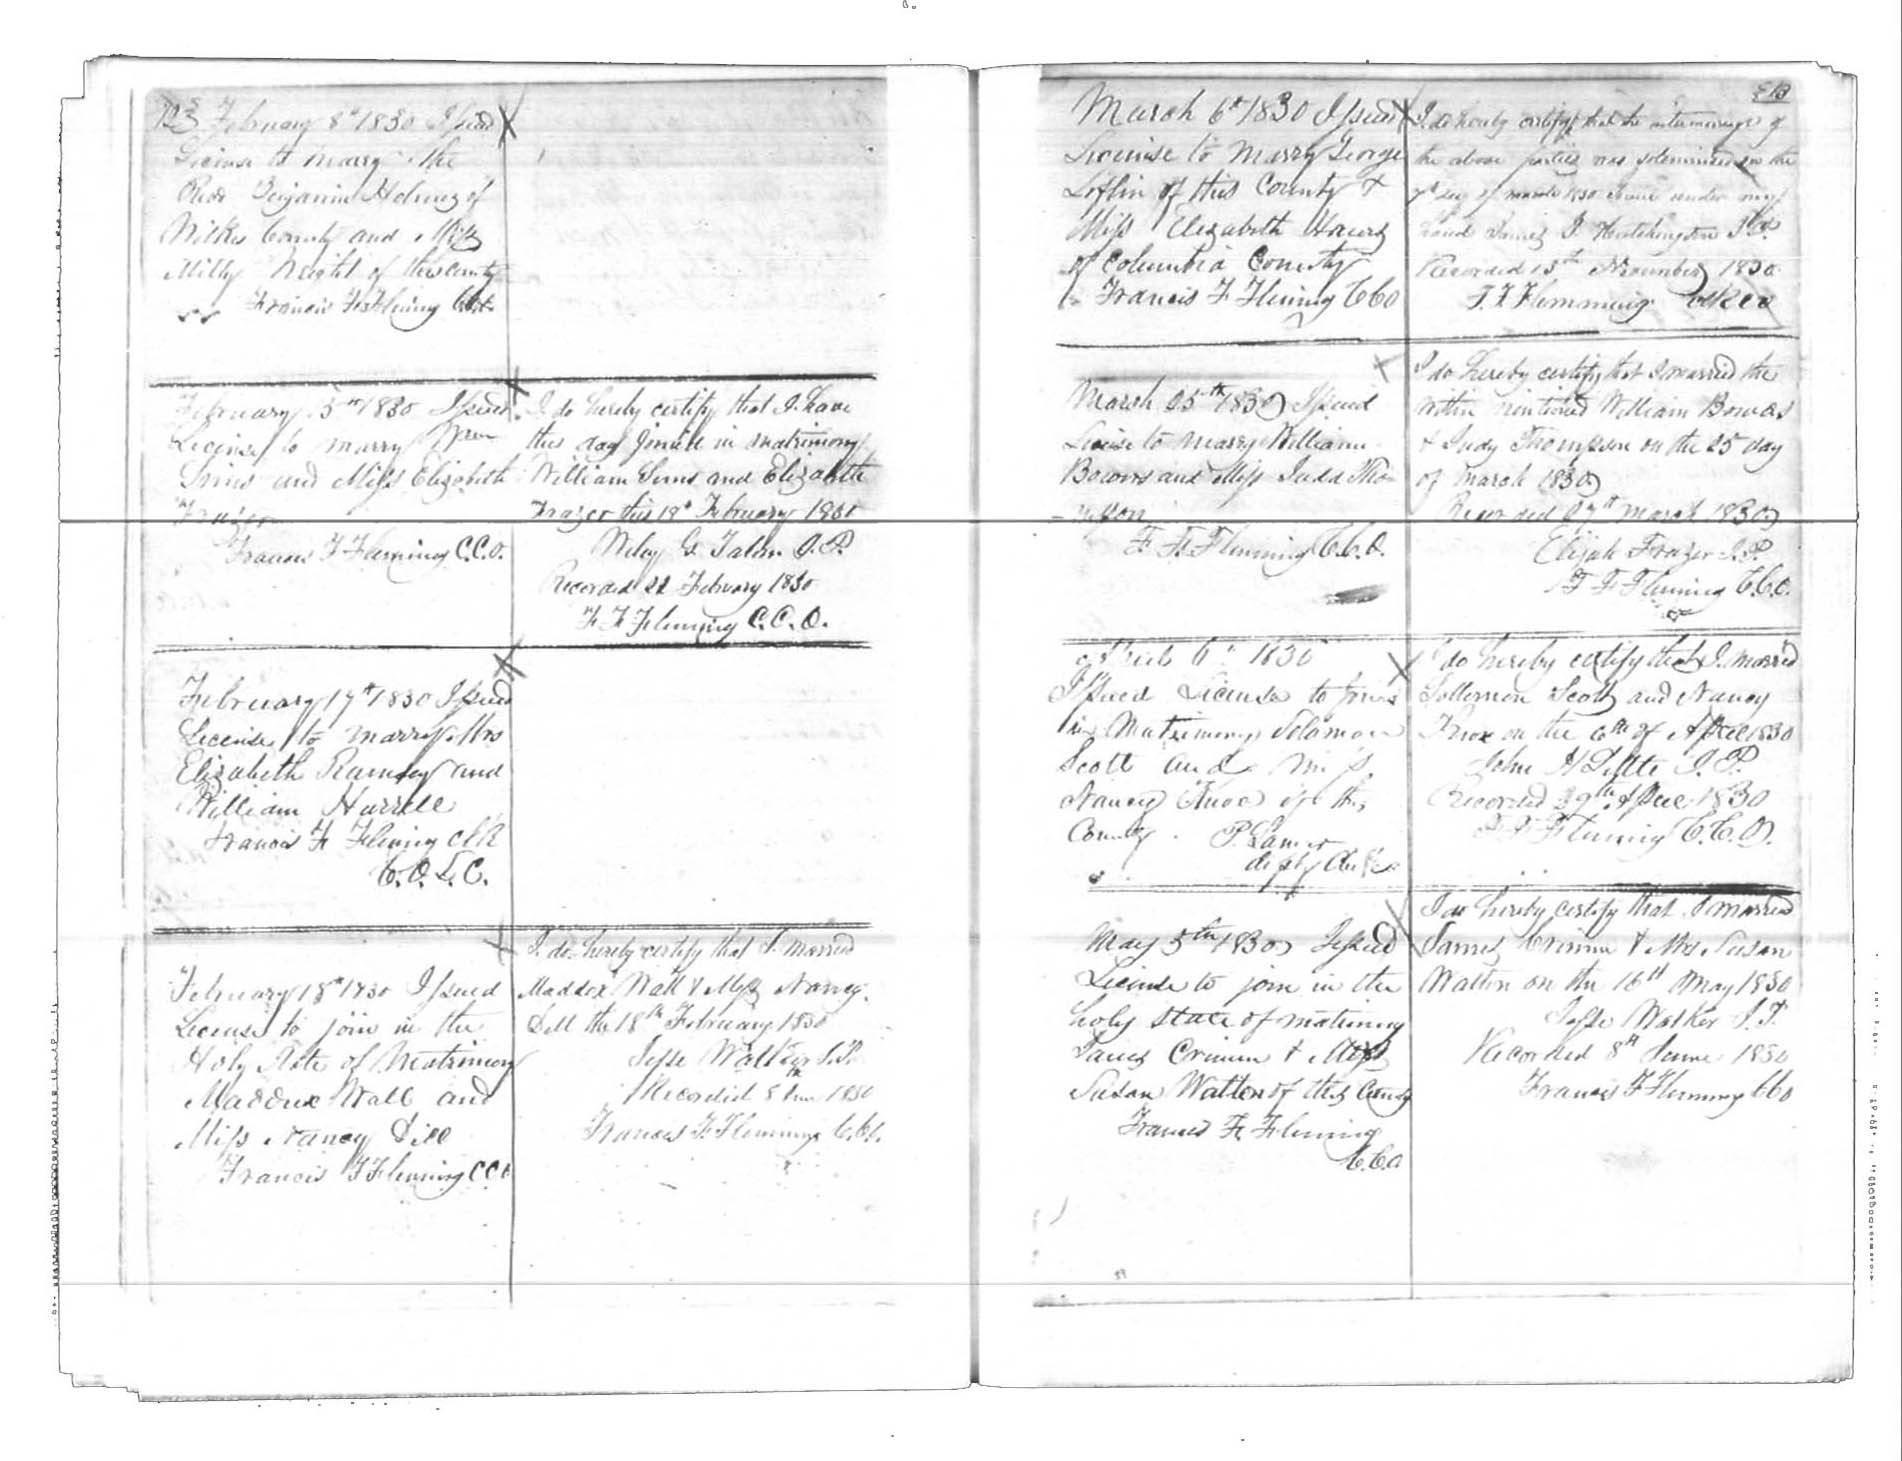 February 8th 1830 Issued
License to Marry the
Revd Benjamin Holmes of
Wilkes County and Miss
Milly of this County
Francis F Fleming
February 5th 1830 Issued
License to marry Wm
Sims and Miss Elizabeth
Frazer
Francis F Fleming C.C.O.
I do hereby certify that I have
this day joined in matrimony
William Sims and Elizabeth
Frazer this 18th February 1830
Wiley G. J.P.
Recorded 22 February 1830
F F Fleming C.C.O.
February 17th 1830 Issued
License to marry Mrs
Elizabeth Ramsey and
William Harrell
Francis F Fleming Clk
C.O.L.C.
February 18th 1830 Issued
License to join in the
Holy State of Matrimony
Maddox Wall and
Miss Nancy Dill
Francis F Fleming CCO
I do hereby certify that I married
Maddox Wall & Miss Nancy
Dill the 18th February 1830
Jesse Walker J.P.
Recorded 8 June 1830
Francis F. Fleming C.C.O.
March 6th 1830 Issued
License to Marry George
Loflin of this County &
Miss Elizabeth
of Columbia County
Francis F Fleming CCO
I do hereby certify that the intermarriage of
the above parties was solemnized on the
7th day of march 1830 Given under my
hand James J. Hutchingson J.P.
Recorded 15th November 1830
F. F. Flemming Clk CO
March 25th 1830 Issued
License to Marry William
Bowers and Miss Juda Tho-
-mpson
F. F. Fleming C.C.O.
I do hereby certify that I married the
within mentioned William Bowers
& Judy Thompson on the 25 day
of March 1830
Recorded 27th march 1830
Elijah Frazer J.P.
F F Fleming C.C.O.
April 6th 1830
Issued License to join
in Matrimony Solomon
Scott and Miss
Nancy Knox of this
County. P. Lamar
depty Clk
I do hereby certify that I married
Sollomon Scott and Nancy
Knox on the 6th of April 1830
John H Little J.P.
Recorded 29th April 1830
F F Fleming C.C.O.
May 5th 1830 Issued
License to join in the
holy state of matrimony
James Crimm & Miss
Susan Walton of this County
Francis F. Fleming
C.C.O
I do hereby certify that I married
James Crimm & Mrs Susan
Walton on the 16th May 1830
Jesse Walker J.P.
Recorded 8th June 1830
Francis F Fleming CCO